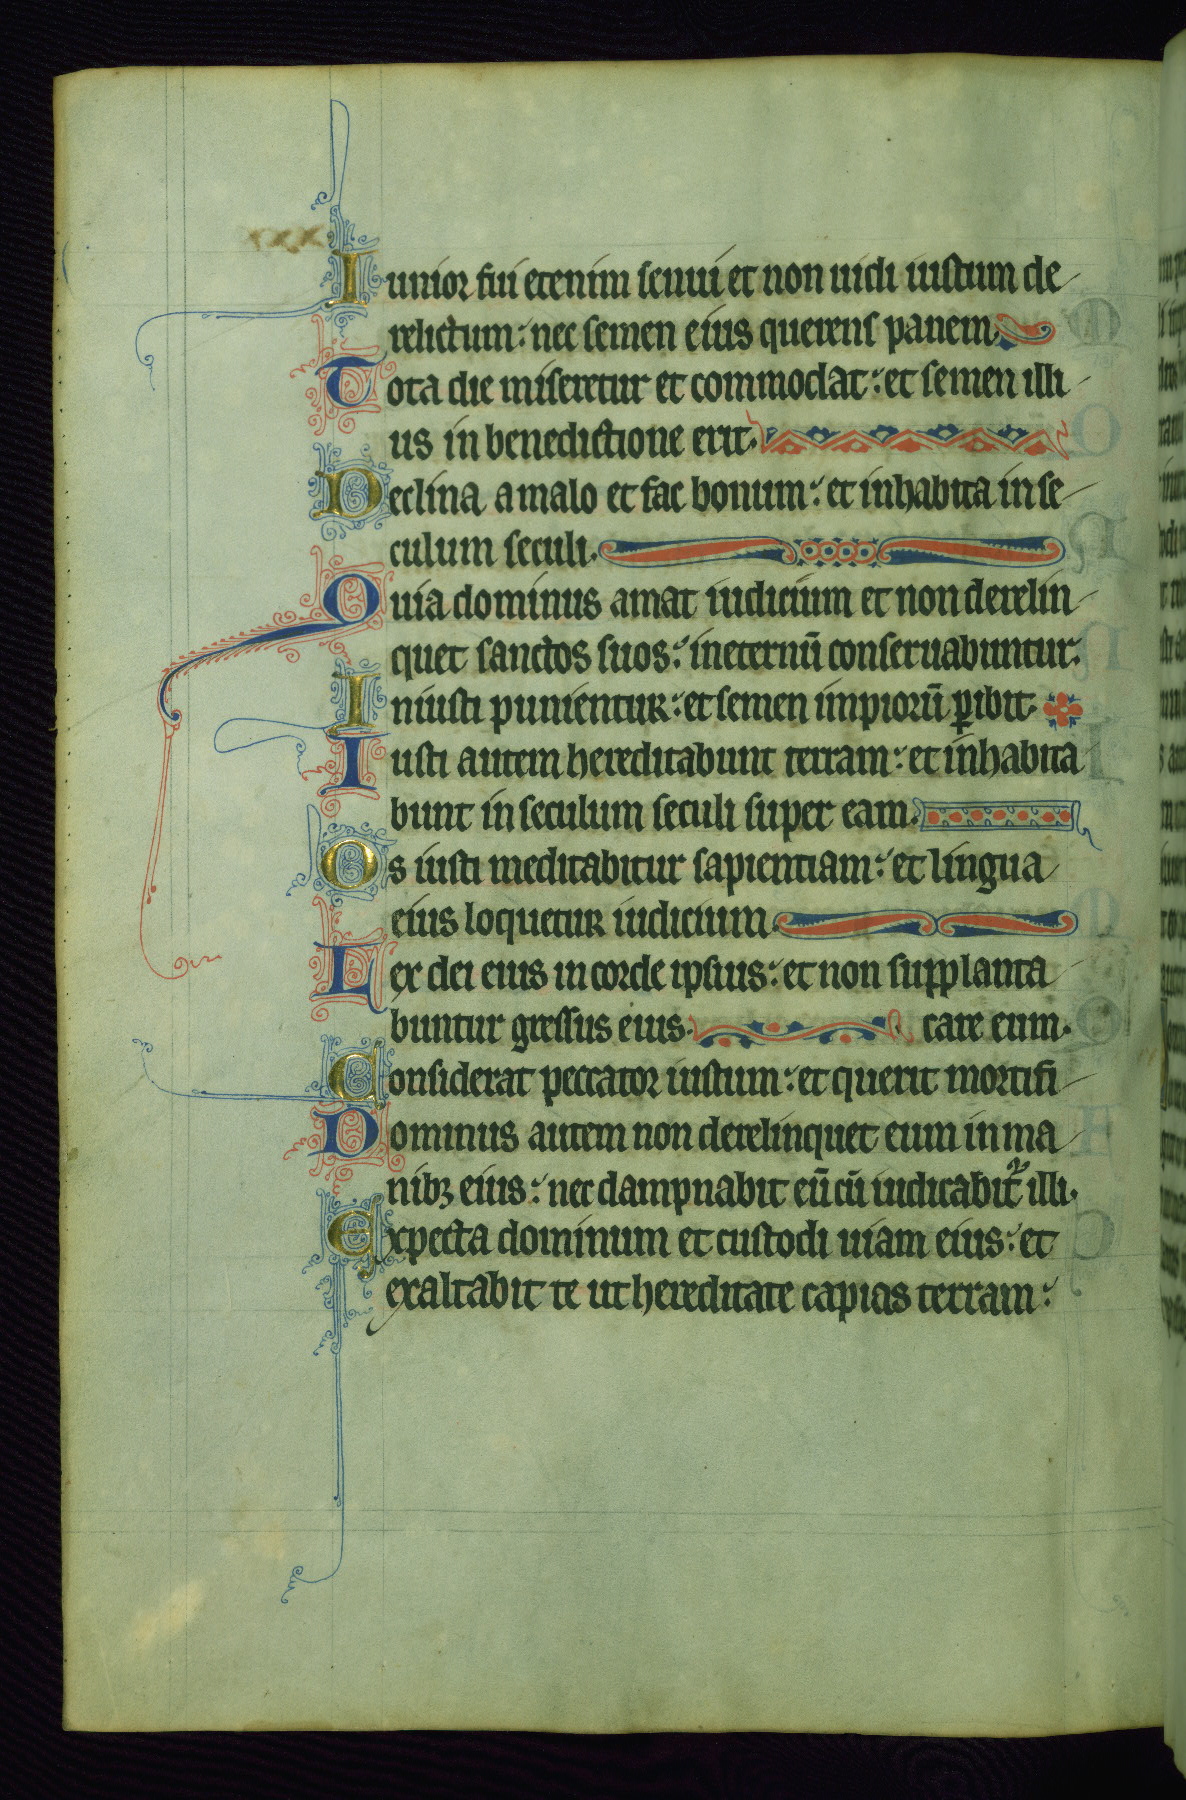 xxx
Iunior fui etenim senui et non uidi iustum de
relictum: nec semen eius querens panem.
Tota die miseretur et commodat: et semen illi
us in benedictione erit.
Declina a malo et fac bonum: et inhabita in se
culum seculi.
Quia dominus amat iudicium et non derelin
quet sanctos suos: in eternū conseruabuntur.
Iniusti punientur: et semen impiorū ꝑibit.
Iusti autem hereditabunt terram: et inhabita
bunt in seculum seculi super eam.
Os iusti meditabitur sapientiam: et lingua
eius loquetur iudicium.
Lex dei eius in corde ipsius: et non supplanta
buntur gressus eius. care eum.
Considerat peccator iustum: et querit mortifi
Dominus autem non derelinquet eum in ma
nibꝫ eius: nec dampnabit eū cū iudicabit᷑ illi.
Expecta dominum et custodi uiam eius: et
exaltabit te ut hereditate capias terram: